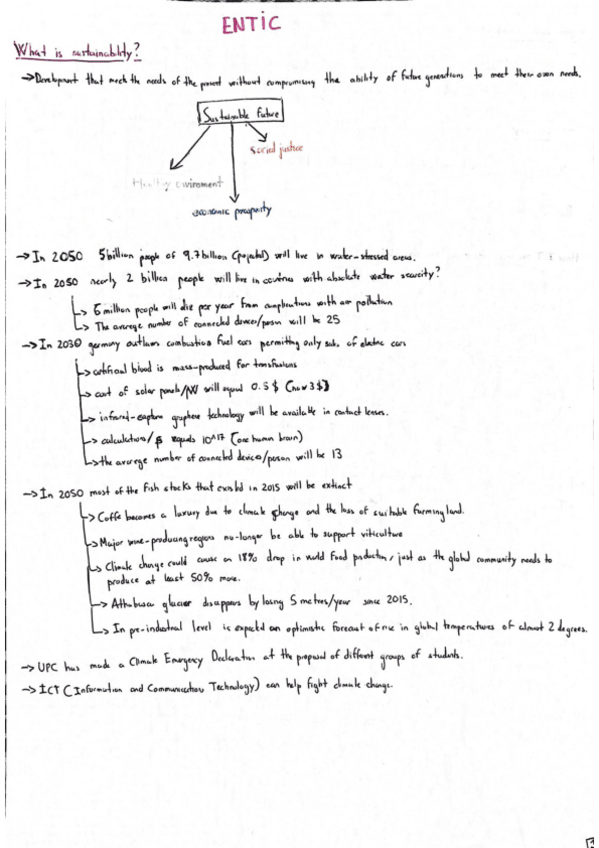 ENTIC
What is sustainability?
→ Development that meets the needs of the present without compromising the ability of future generations to meet their own needs.
Sustainable future
social justice
Healthy enviroment
economic prosperity
→ In 2050 5 billion people of 9.7 billion (projected) will live in water-stressed areas.
→ In 2050 nearly 2 billion people will live in countries with absolute water scarcity?
↳ 6 million people will die per year from complications with air pollution
↳ The average number of connected devices/person will be 25
→ In 2030 germany outlaws combustion fuel cars permitting only sub. of electric cars
↳ artificial blood is mass-produced for transfusions
↳ cost of solar panels/W will equal 0.5 $ (now 3 $)
↳ infrared-capture graphene technology will be available in contact lenses.
↳ calculations/$ equals 10^17 (one human brain)
↳ the average number of connected devices/person will be 13
→ In 2050 most of the fish stocks that existed in 2015 will be extinct
↳ Coffe becomes a luxury due to climate change and the loss of suitable farming land.
↳ Major wine-producing regions no-longer be able to support viticulture
↳ Climate change could cause an 18% drop in world food production, just as the global community needs to
produce at least 50% more.
↳ Athabasca glacier disappears by losing 5 metres/year since 2015.
↳ In pre-industrial level is expected an optimistic forecast of rise in global temperatures of almost 2 degrees.
→ UPC has made a Climate Emergency Declaration at the proposal of different groups of students.
→ ICT (Information and Communication Technology) can help fight climate change.